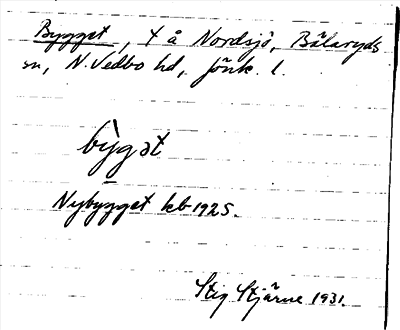 Bygget, t å Nordsjö, Bälaryds
sn, N. Vedbo hd, Jönk. l.
bỳgət
Nybygget kb 1925.
Stig Stjärne 1931.